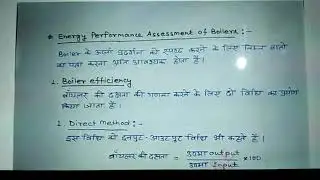 * Energy Performance Assessment of Boilers :-
Boiler के अच्छे प्रदर्शन को स्पष्ट करने के लिए निम्न बातों
का पता करना अति आवश्यक होता है।
1. Boiler efficiency
बॉयलर की दक्षता की गणना करने के लिए दो विधि का प्रयोग
किया जाता है।
1. Direct Method:-
इस विधि को इनपुट-आउटपुट विधि भी कहते हैं।
बॉयलर की दक्षता = ऊष्मा output / ऊष्मा input × 100